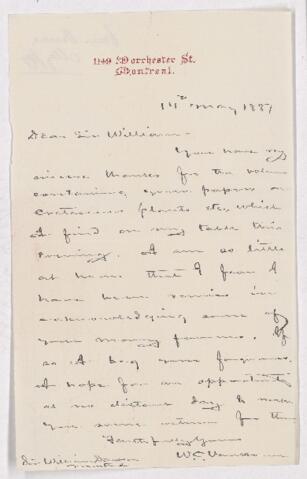 1149 Dorchester St.
Montreal.
14th May 1887
Dear Sir William -
You have my
sincere thanks for the volume
containing your papers on
Cretaceous plants etc. which
I find on my table this
evening. I am so little
at home that I fear I
have been remiss in
acknowledging some of
your many favours. If
so I beg your forgiveness.
I hope for an opportunity
at no distant day to make
you some return for them
Faithfully Yours
W.C. Van Horne
Sir William Dawson
Montreal